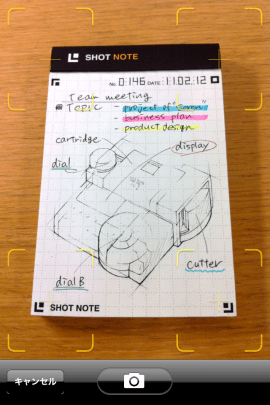 SHOT NOTE
No. 0146 DATE 1102.12
Team meeting
TOPIC - project of "Seven"
- business plan
- product design
cartridge
display
dial
dial B
cutter
SHOT NOTE
キャンセル